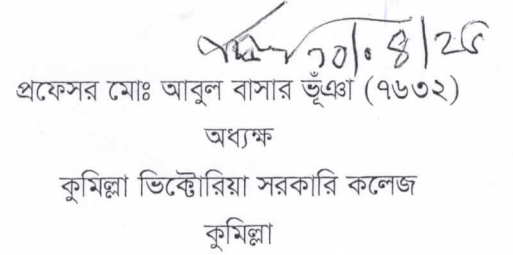 প্রফেসর মোঃ আবুল বাসার ভূঁঞা (৭৬৩২)
অধ্যক্ষ
কুমিল্লা ভিক্টোরিয়া সরকারি কলেজ
কুমিল্লা